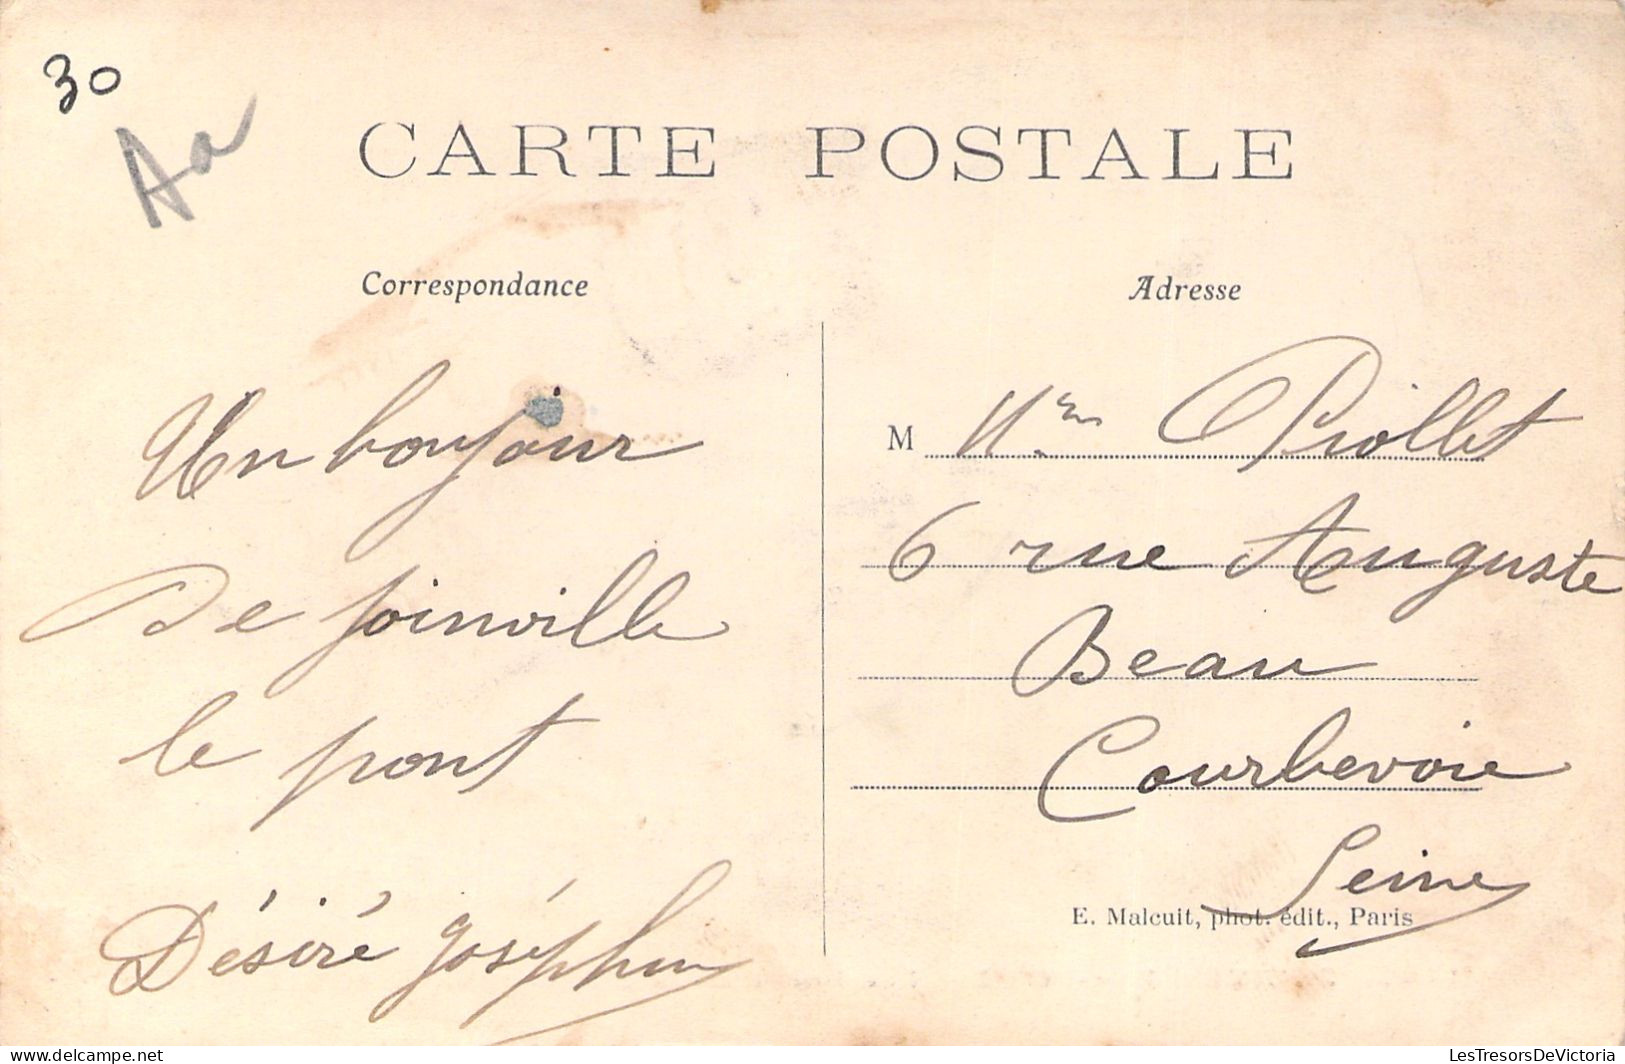 30
Aa
CARTE POSTALE
Correspondance
Un bonjour
De joinville
le pont
Désiré joséphine
Adresse
M Mme Piollet
6 rue Auguste
Beau
Courbevoie
Seine
E. Malcuit, phot. édit., Paris
delcampe.net
LesTresorsDeVictoria